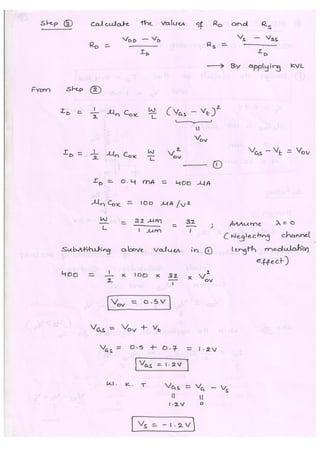 Step ③ calculate the values of RD and RS
RD = (VDD − VD) / ID    RS = (VS − VSS) / ID
⟶ By applying KVL
From step ②
ID = 1/2 μn Cox W/L (VGS − Vt)²
||
Vov
ID = 1/2 μn Cox W/L Vov² —— ①    VGS − Vt = Vov
ID = 0.4 mA = 400 μA
μn Cox = 100 μA/V²
W/L = 32 μm / 1 μm = 32/1 ; Assume λ = 0
(Neglecting channel
length modulation
effect)
Substituting above values in ①
400 = 1/2 × 100 × 32/1 × Vov²
Vov = 0.5V
VGS = Vov + Vt
VGS = 0.5 + 0.7 = 1.2V
VGS = 1.2V
W. K. T VGS = VG − VS
|| ||
1.2V 0
VS = −1.2V